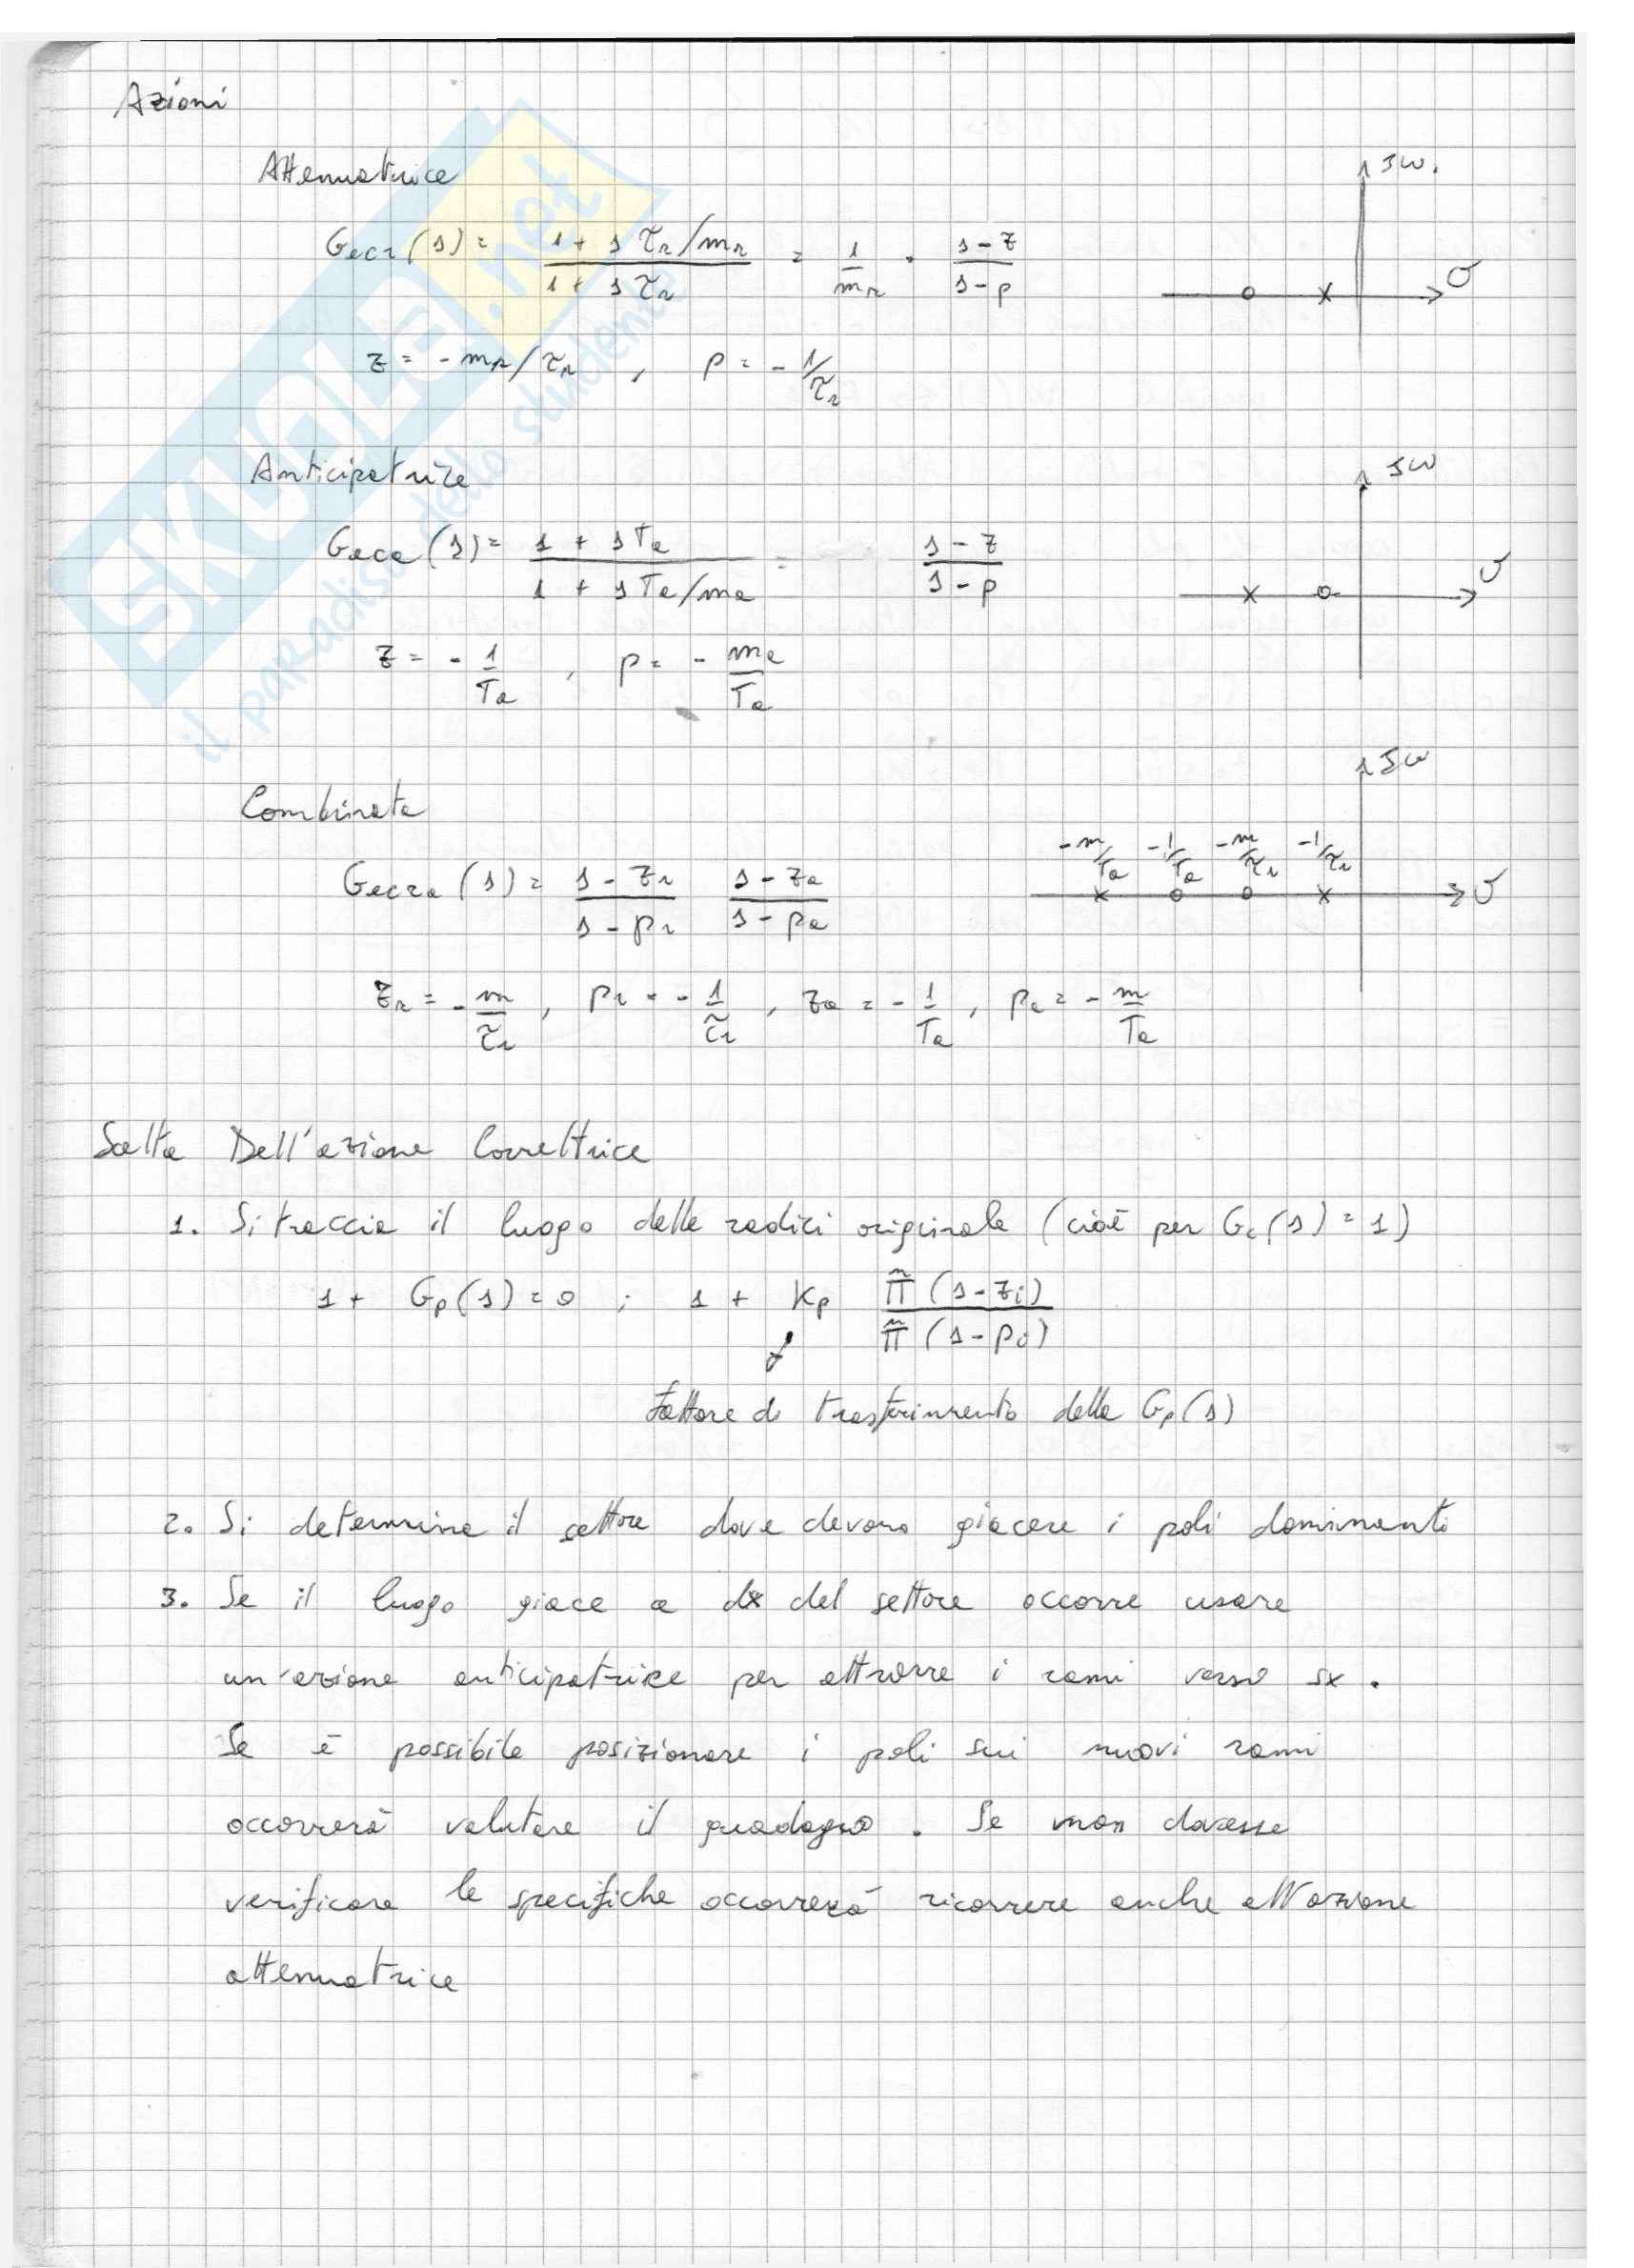 Azioni
Attenuatrice
Gecr(s) = (1 + s τr/mr)/(1 + s τr) = 1/mr · (s - z)/(s - p)
jω.
σ
z = - mr/τr , p = - 1/τr
Anticipatrice
Geca(s) = (1 + s Ta)/(1 + s Ta/ma) = (s - z)/(s - p)
jω
σ
z = - 1/Ta , p = - ma/Ta
Combinata
jω
-m/Ta -1/Ta -m/τr -1/τr
σ
Gecra(s) = (s - zr)/(s - pr) (s - za)/(s - pa)
zr = - m/τr , pr = - 1/τr , za = - 1/Ta , pa = - m/Ta
Scelta Dell'azione Correttrice
1. Si traccia il luogo delle radici originale (cioè per Gc(s) = 1)
1 + Gp(s) = 0 ; 1 + Kp Π(s - zi)/Π(s - pi)
Fattore di trasferimento della Gp(s)
2. Si determina il settore dove devono giacere i poli dominanti
3. Se il luogo giace a dx del settore occorre usare
un'azione anticipatrice per attrarre i rami verso sx.
Se è possibile posizionare i poli sui nuovi rami
occorrerà valutare il guadagno. Se non dovesse
verificare le specifiche occorrerà ricorrere anche all'azione
attenuatrice
SKUOLA.net
il paradiso dello studente